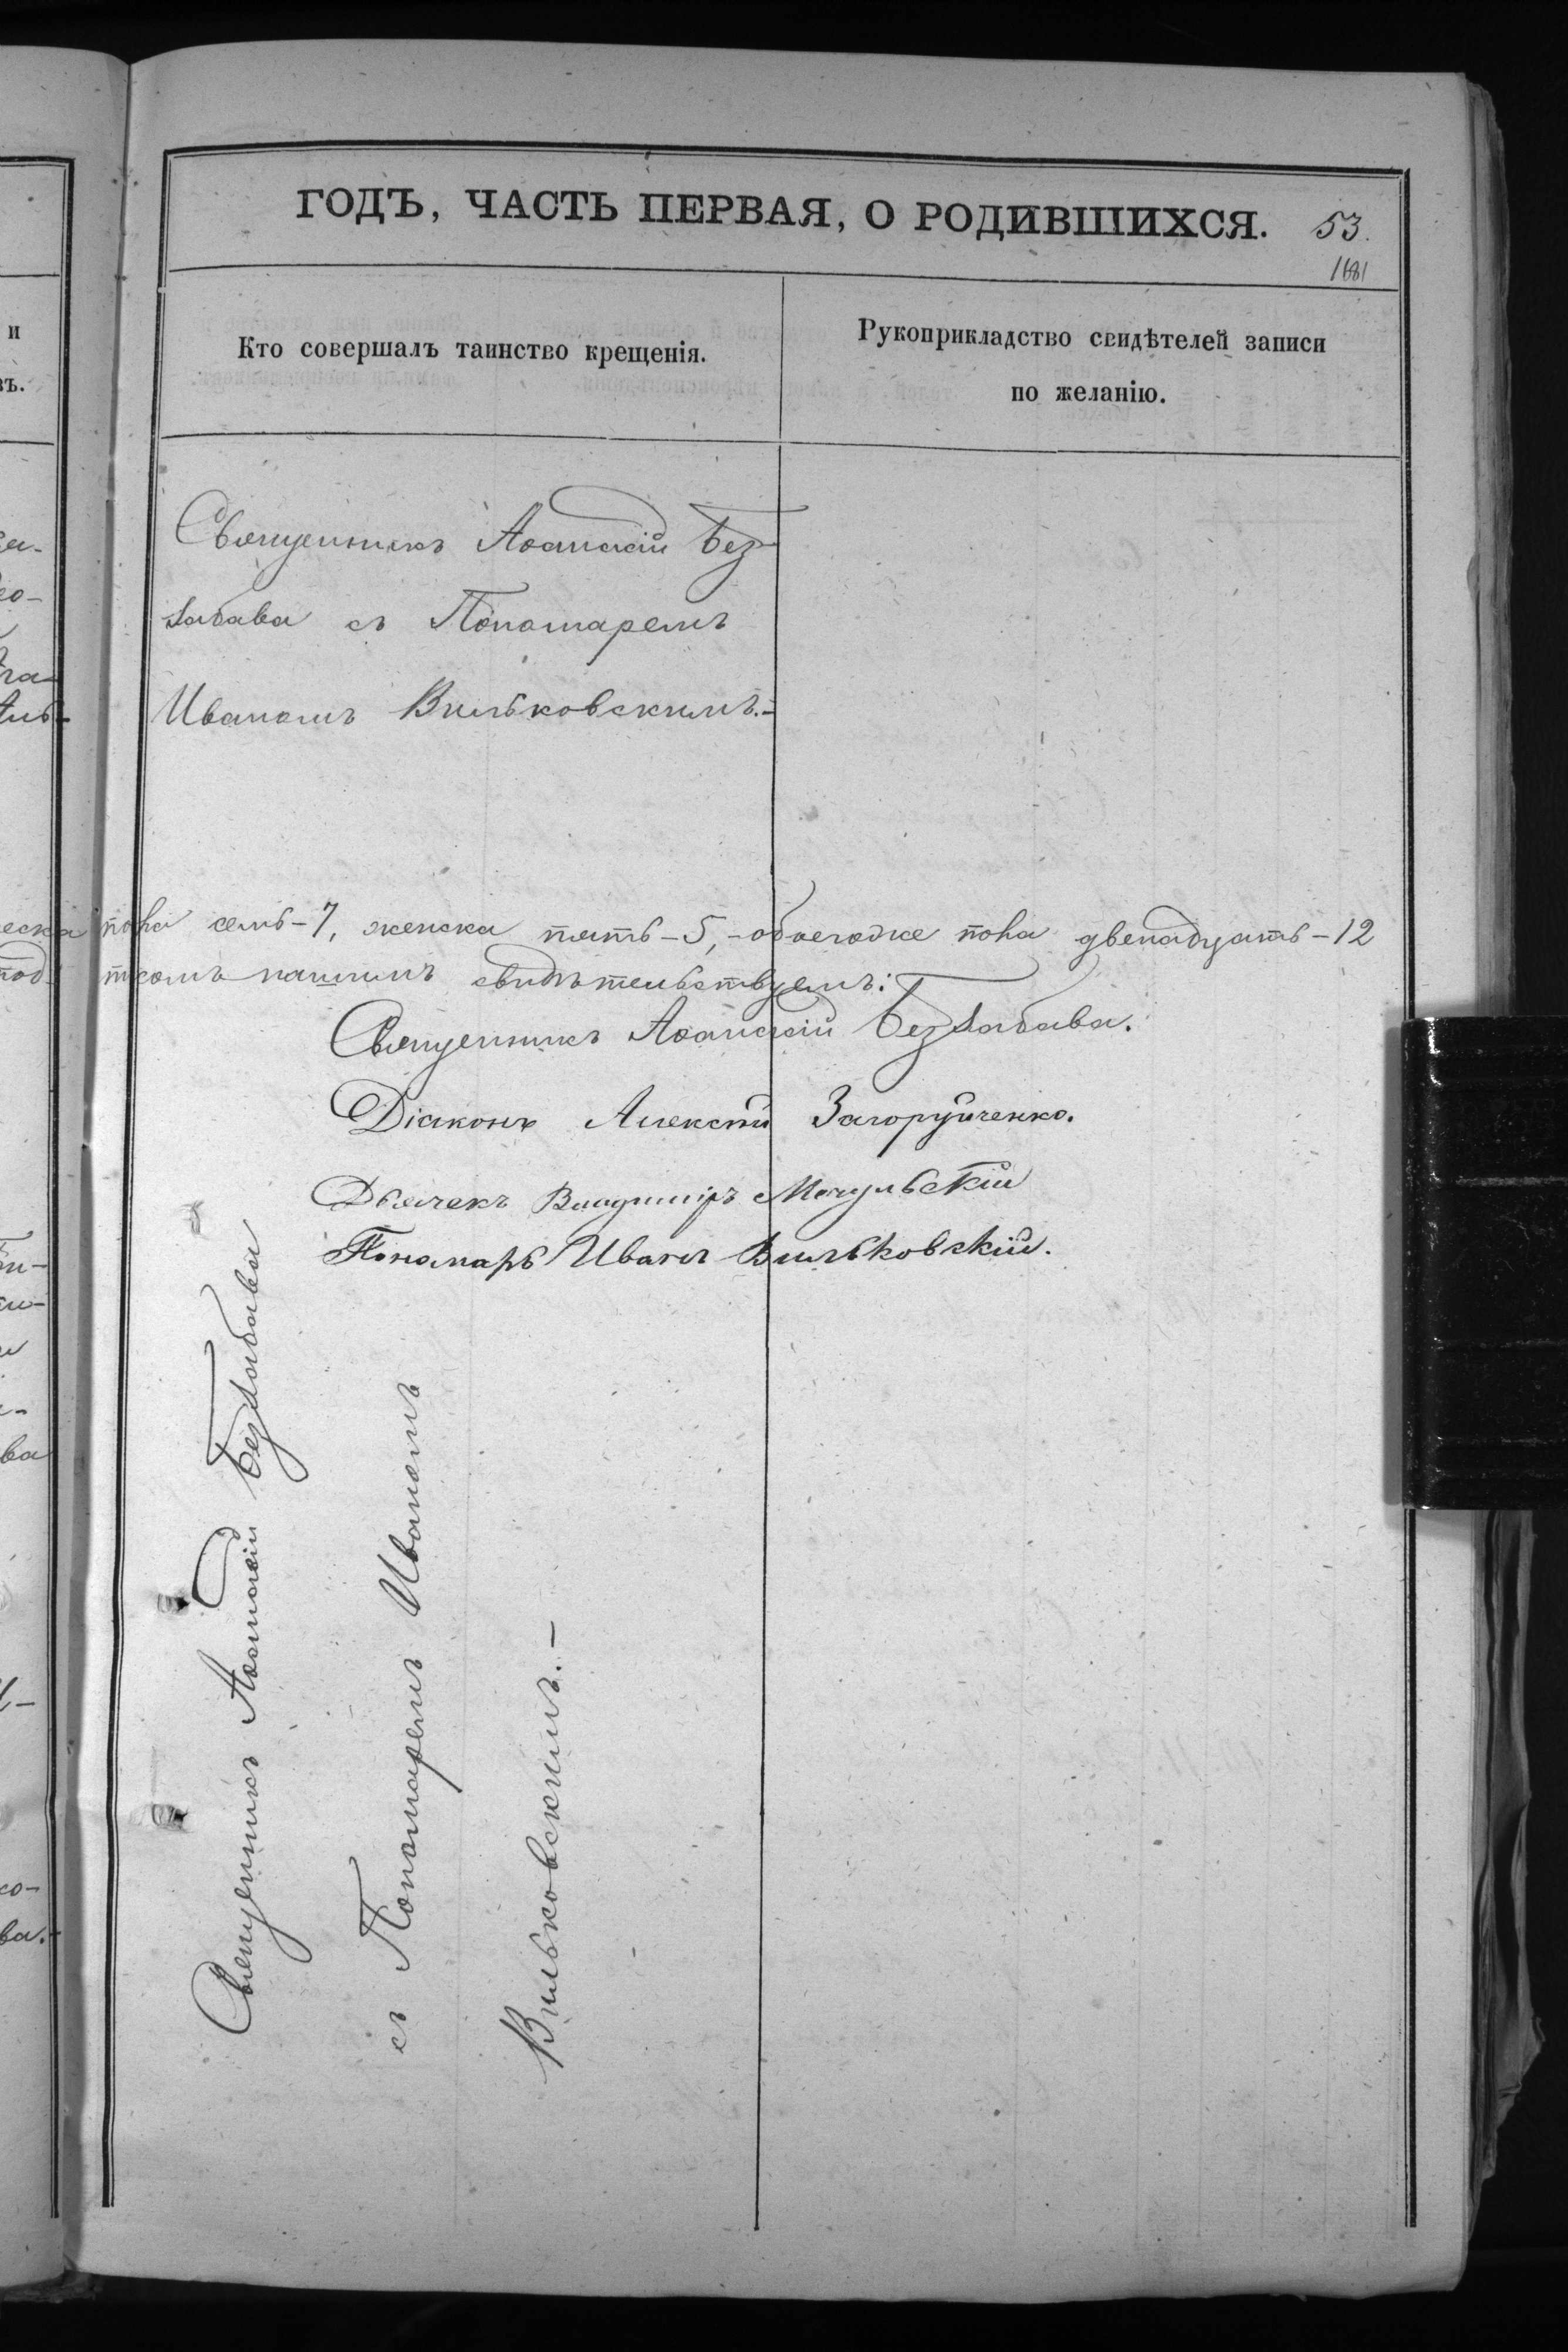 ГОДЪ, ЧАСТЬ ПЕРВАЯ, О РОДИВШИХСЯ. 53.
Кто совершалъ таинство крещенія.
Рукоприкладство свидѣтелей записи
по желанію.
Священникъ Аѳанасій Без-
забава съ Пономаремъ
Иваномъ Вильковскимъ.-
пола семь-7, женска пять-5,-обоегоже пола двенадцать-12
под писомъ нашимъ свидѣтельствуемъ:
Священникъ Аѳанасій Беззабава.
Діаконъ Алексѣй Загоруйченко.
Дьячекъ Владиміръ Мочульскій
Пономарь Иванъ Вильковскій.
Священникъ Аѳанасій Беззабава
съ Пономаремъ Иваномъ
Вильковскимъ.-
и
въ.
ва
ва.